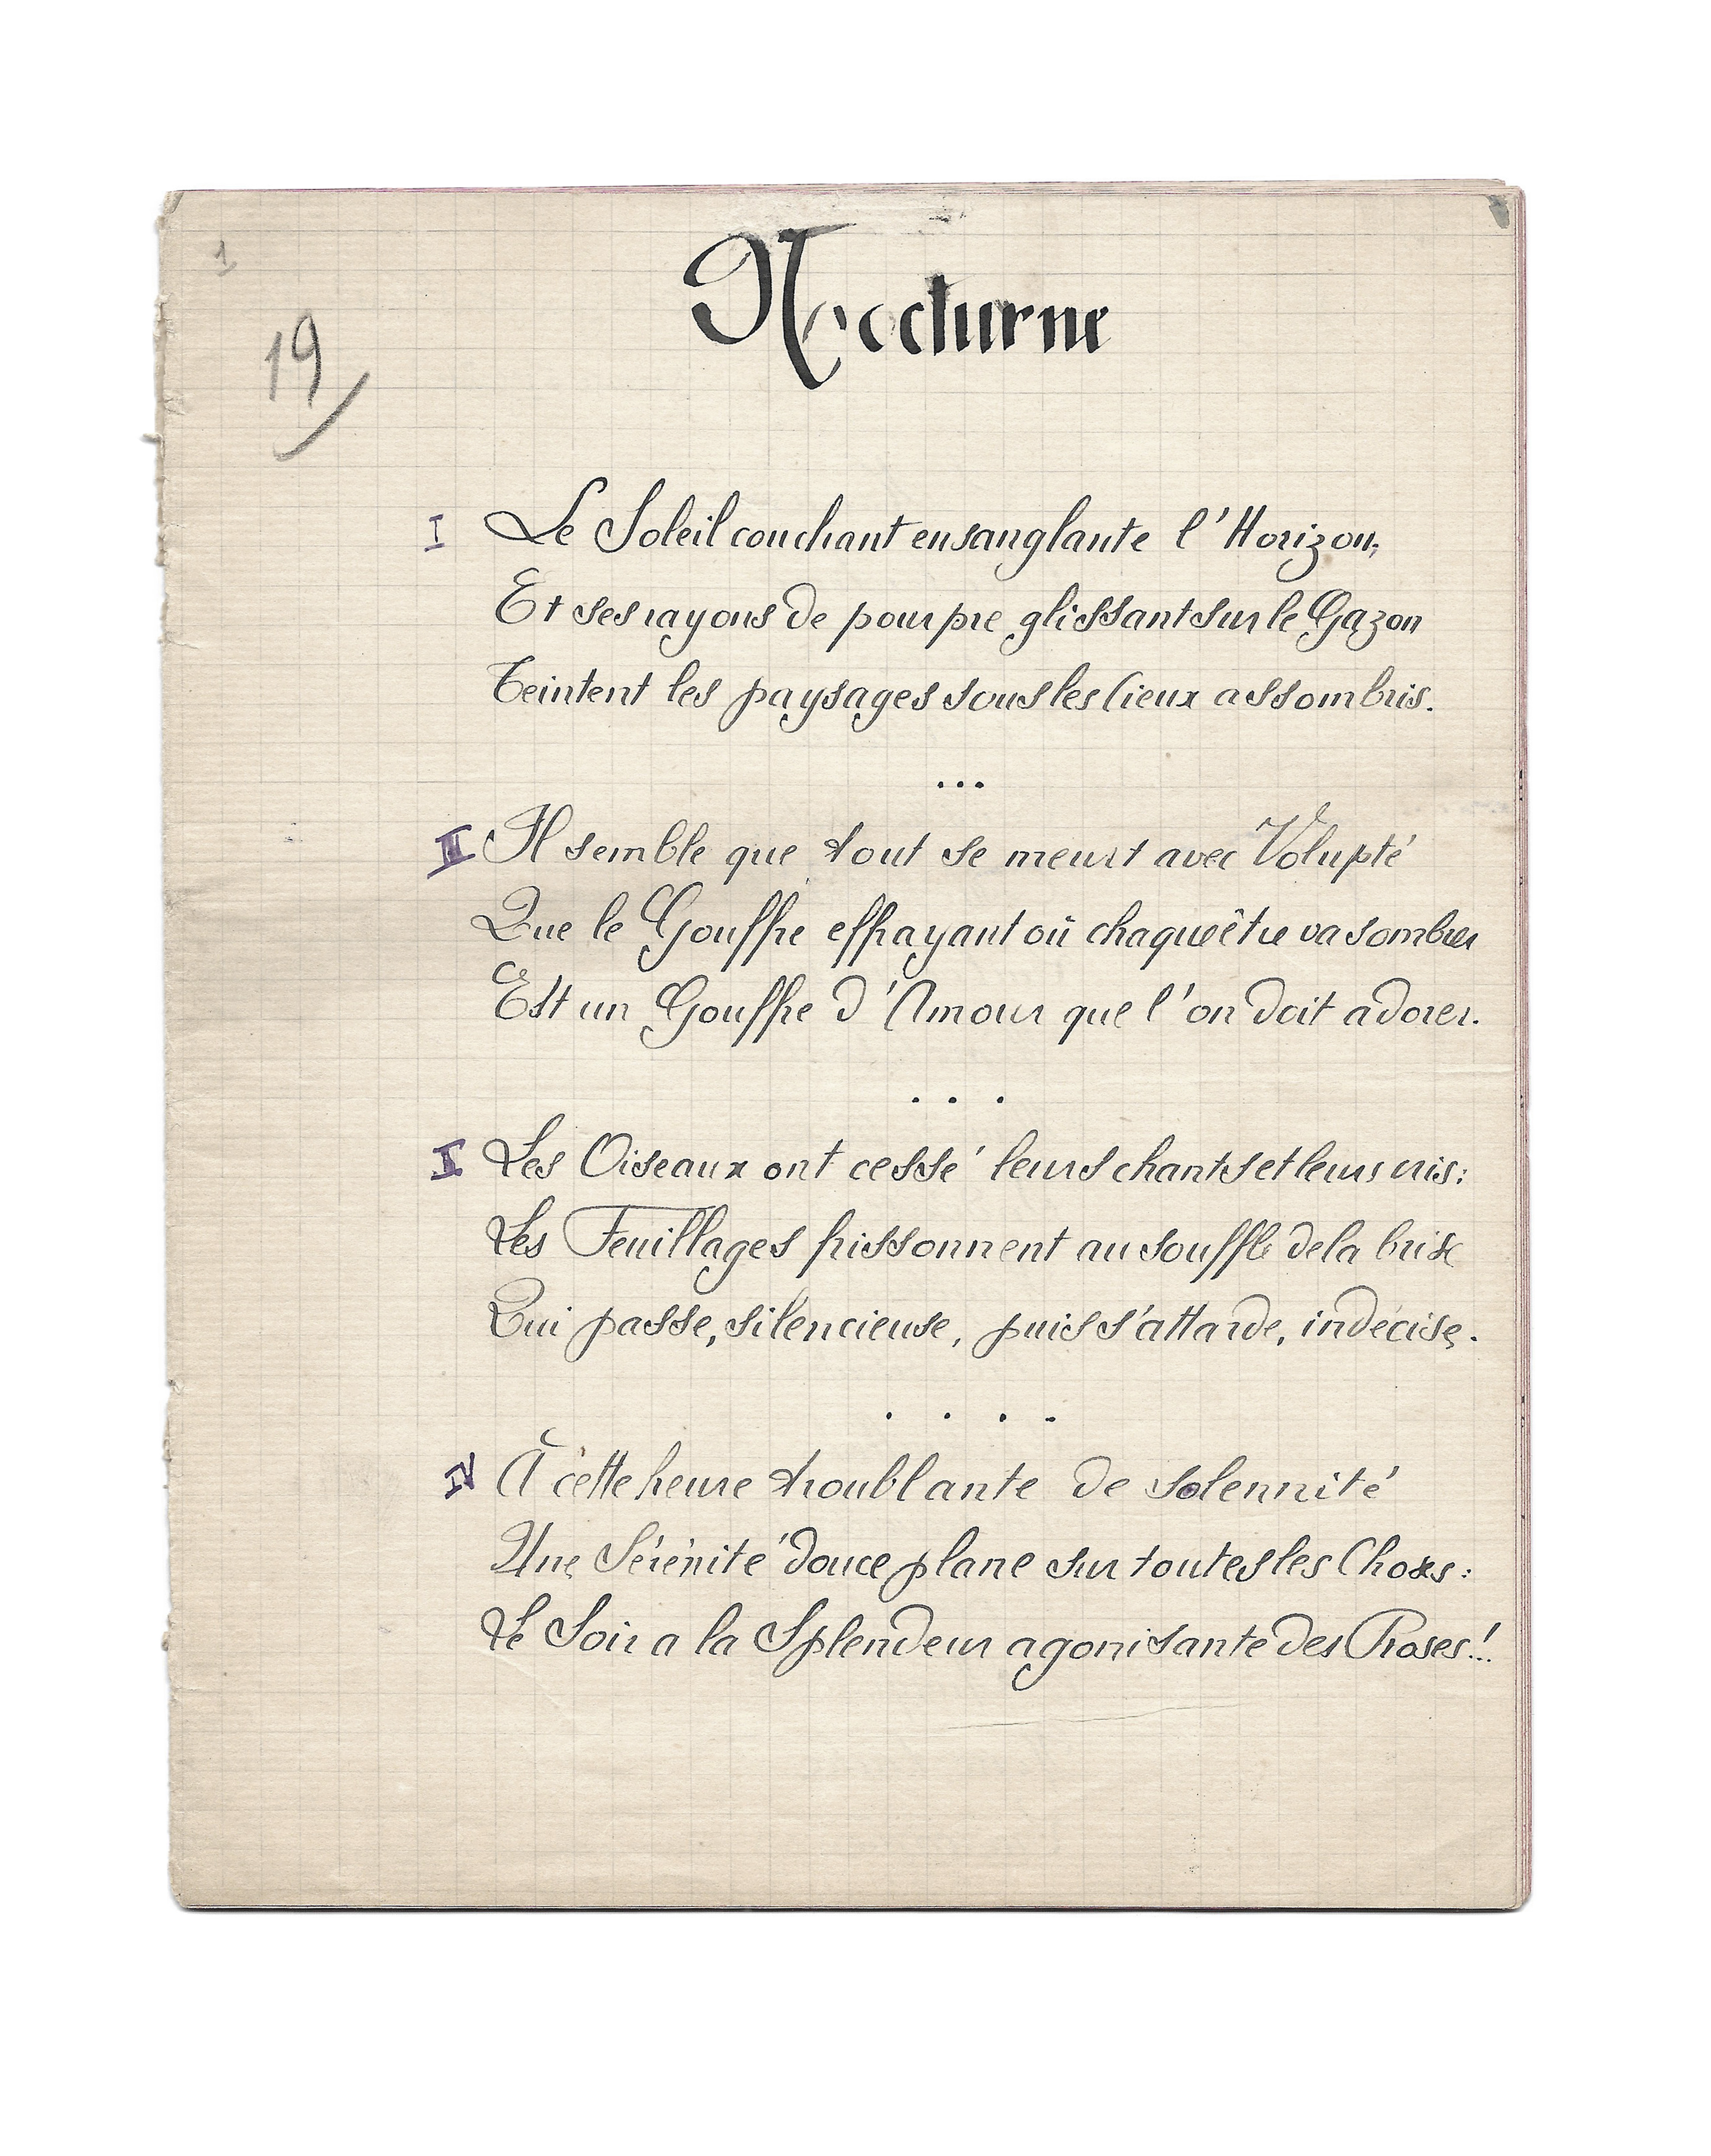 1
Nocturne
19
I Le Soleil couchant ensanglante l'Horizon,
Et ses rayons de pourpre glissant sur le Gazon
Teintent les paysages sous les Cieux assombris.
...
III Il semble que tout se meurt avec Volupté
Que le Gouffre effrayant où chaque être va sombrer
Est un Gouffre d'Amour que l'on doit adorer.
. . .
II Les Oiseaux ont cessé leurs chants et leurs cris:
Les Feuillages frissonnent au souffle de la brise
Qui passe, silencieuse, puis s'attarde, indécise.
. . . .
IV À cette heure troublante de solennité
Une Sérénité douce plane sur toutes les Choses:
Le Soir a la Splendeur agonisante des Roses!..